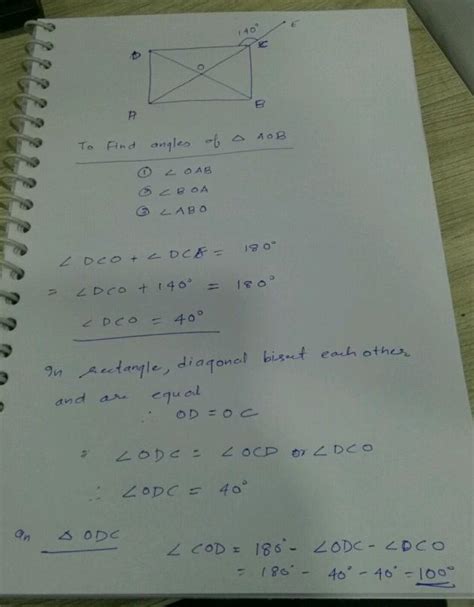 E
140°
D C
O
A B
To Find angles of △ AOB
① ∠OAB
② ∠BOA
③ ∠ABO
∠DCO + ∠DCE = 180°
= ∠DCO + 140° = 180°
∠DCO = 40°
In rectangle, diagonal bisect each other
and are equal
∴ OD = OC
= ∠ODC = ∠OCD or ∠DCO
∴ ∠ODC = 40°
In △ ODC
∠COD = 180° - ∠ODC - ∠DCO
= 180° - 40° - 40° = 100°